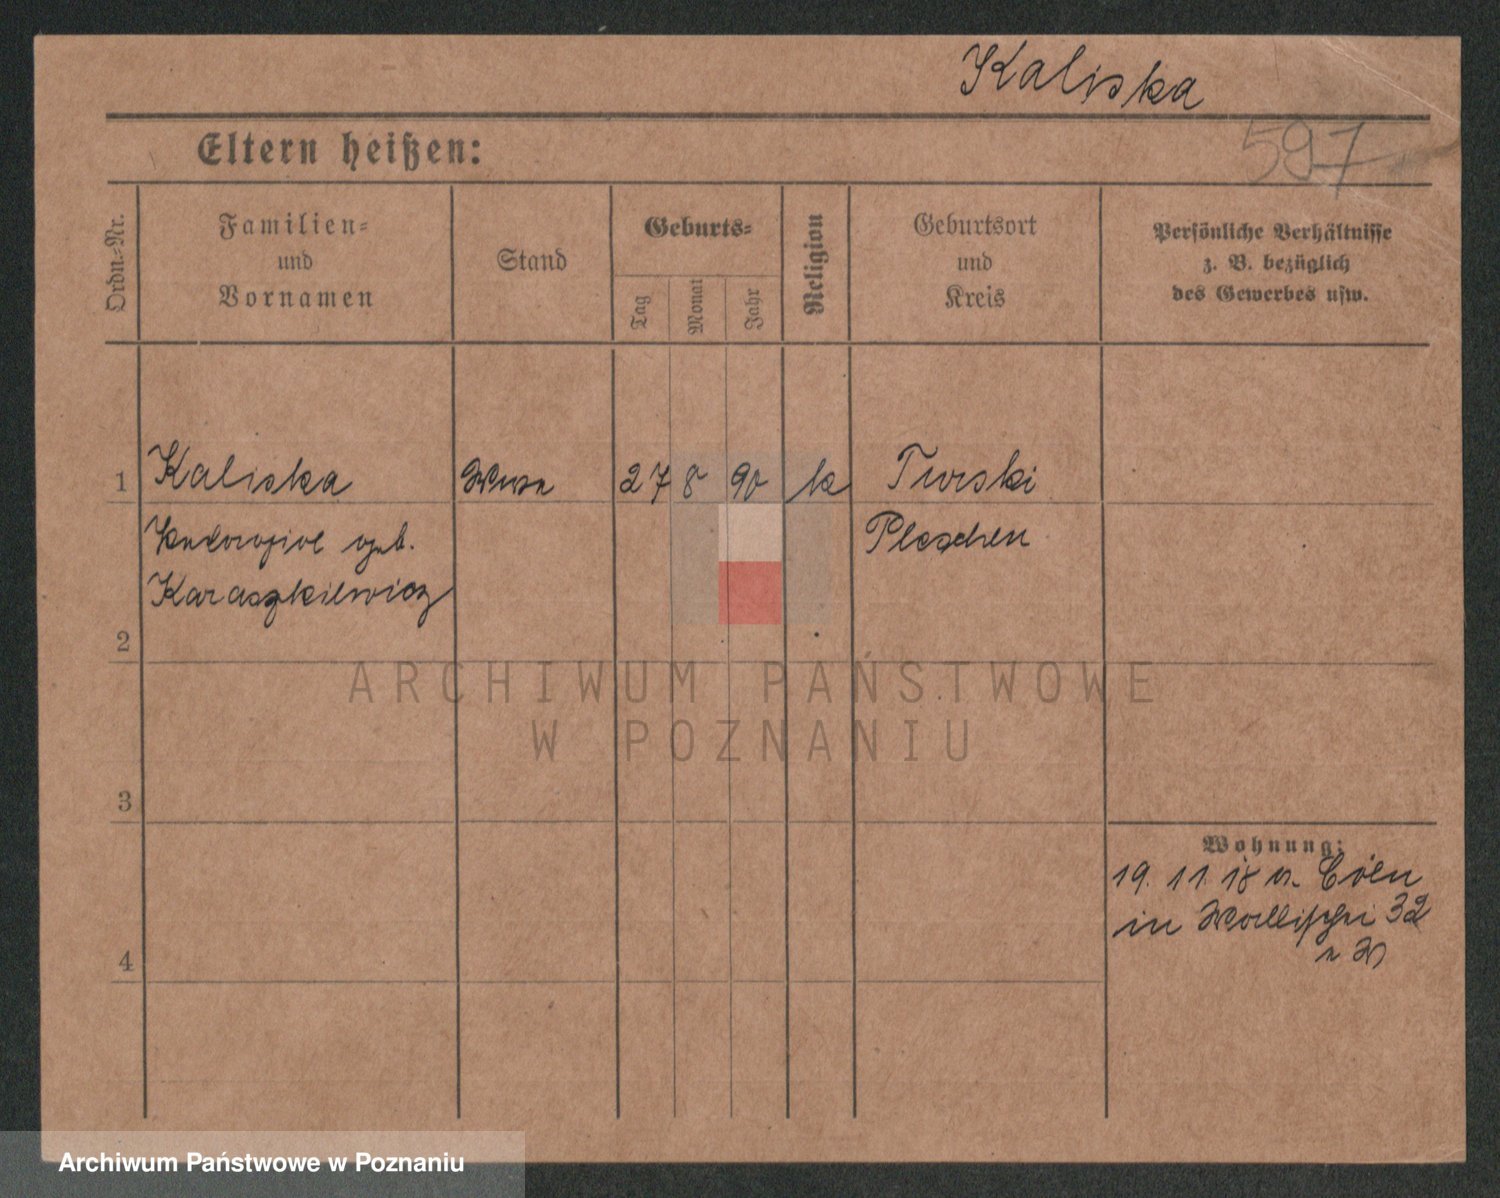 Kaliska
597
Eltern heißen:
Ordn.-Nr.
Familien-
und
Vornamen
Stand
Geburts-
Tag
Monat
Jahr
Religion
Geburtsort
und
Kreis
Persönliche Verhältnisse
z. B. bezüglich
des Gewerbes usw.
1 Kaliska Wwe 27 8 90 k Turski
geb. Pleschen
Karaszkiewicz
2
ARCHIWUM PAŃSTWOWE
W POZNANIU
3
Wohnung:
19. 11. 18 v. Cöln
in Wallischei 32
4
Archiwum Państwowe w Poznaniu